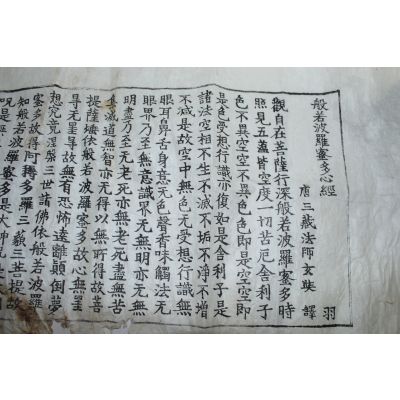 羽
般若波羅蜜多心經
唐三藏法師玄奘 譯
觀自在菩薩行深般若波羅蜜多時
照見五蘊皆空度一切苦厄舍利子
色不異空空不異色色即是空空即
是色受想行識亦復如是舍利子是
諸法空相不生不滅不垢不淨不增
不減是故空中無色无受想行識無
眼耳鼻舌身意无色聲香味觸法无
眼界乃至無意識界无無明亦无無
明盡乃至无老死亦無老死盡無苦
集滅道無智亦无得以無所得故菩
提薩埵依般若波羅蜜多故心無罣
㝵无罣㝵故無有恐怖遠離顛倒夢
想究竟涅槃三世諸佛依般若波羅
蜜多故得阿耨多羅三藐三菩提故
知般若波羅蜜多是大神
呪是